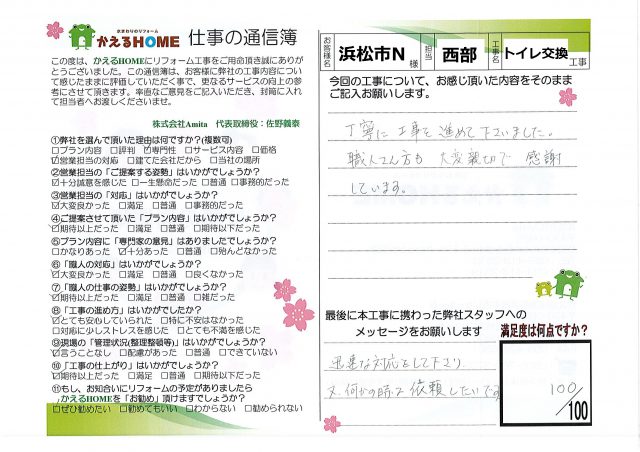 水まわりのリフォーム
かえるHOME
仕事の通信簿
この度は、かえるHOMEにリフォーム工事をご用命頂き誠にありが
とうございました。この通信簿は、お客様に弊社の工事内容につい
て感じたままに評価していただく事で、更なるサービスの向上の参
考にさせて頂きます。率直なご意見をご記入いただき、封筒に入れ
て担当者へお渡しくださいませ。
株式会社Amita 代表取締役：佐野義泰
①弊社を選んで頂いた理由は何ですか?(複数可)
□プラン内容 □評判 ☑専門性 □サービス内容 □価格
☑営業担当の対応 □建てた会社だから □当社の場所
②営業担当の「ご提案する姿勢」はいかがでしょうか?
☑十分誠意を感じた □一生懸命だった □普通 □事務的だった
③営業担当の「対応」はいかがでしょうか?
☑大変良かった □満足 □普通 □事務的だった
④ご提案させて頂いた「プラン内容」はいかがでしょうか?
☑期待以上だった □満足 □普通 □期待以下だった
⑤プラン内容に「専門家の意見」はありましたでしょうか?
□かなりあった ☑十分あった □普通 □殆んどなかった
⑥「職人の対応」はいかがでしょうか?
☑大変良かった □満足 □普通 □良くなかった
⑦「職人の仕事の姿勢」はいかがでしょうか?
☑期待以上だった □満足 □普通 □雑だった
⑧「工事の進め方」はいかがでしたか?
☑とても安心していられた □特に不安はなかった
□対応に少しストレスを感じた □とても不満を感じた
⑨現場の「管理状況(整理整頓等)」はいかがでしょうか?
☑言うことなし □配慮があった □普通 □できていない
⑩「工事の仕上がり」はいかがでしょうか?
☑期待以上だった □満足 □普通 □期待以下だった
⑪もし、お知合いにリフォームの予定がありましたら
かえるHOMEを「お勧め」頂けますでしょうか?
□ぜひ勧めたい □勧めてもいい □わからない □勧められない
お客様名 浜松市N 様 担当 西部 工事名 トイレ交換 工事
今回の工事について、お感じ頂いた内容をそのまま
ご記入お願します。
丁寧に工事を進めて下さいました。
職人さん方も大変親切で感謝
しています。
最後に本工事に携わった弊社スタッフへの
メッセージをお願いします
迅速な対応をして下さり
又、何かの時は依頼したいです
満足度は何点ですか?
100
/100